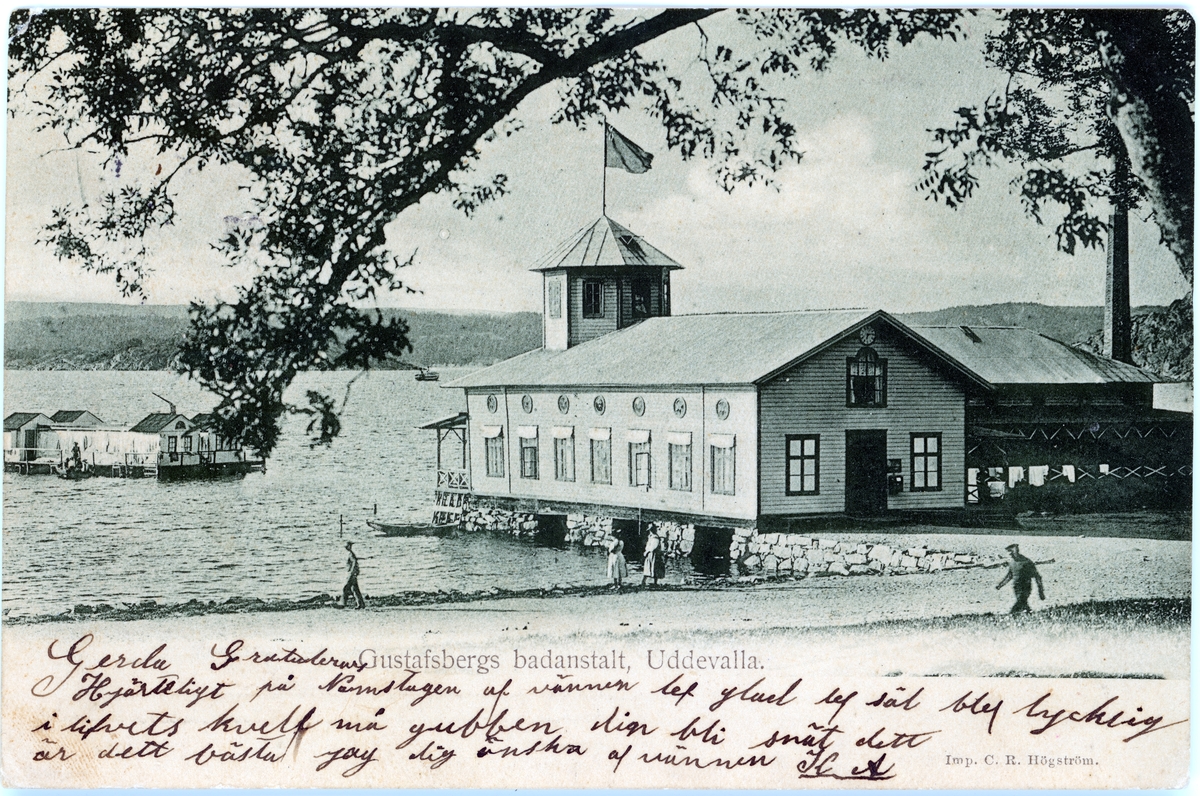 Gustafsbergs badanstalt, Uddevalla.
Gerda Gratuleras
Hjärtligt på Namnsdagen af vännen lef glad lef säl blef lycklig
i lifvets kvell må gubben din bli snäl dett
är dett bästa jag dig önska af vännen K A
Imp. C. R. Högström.